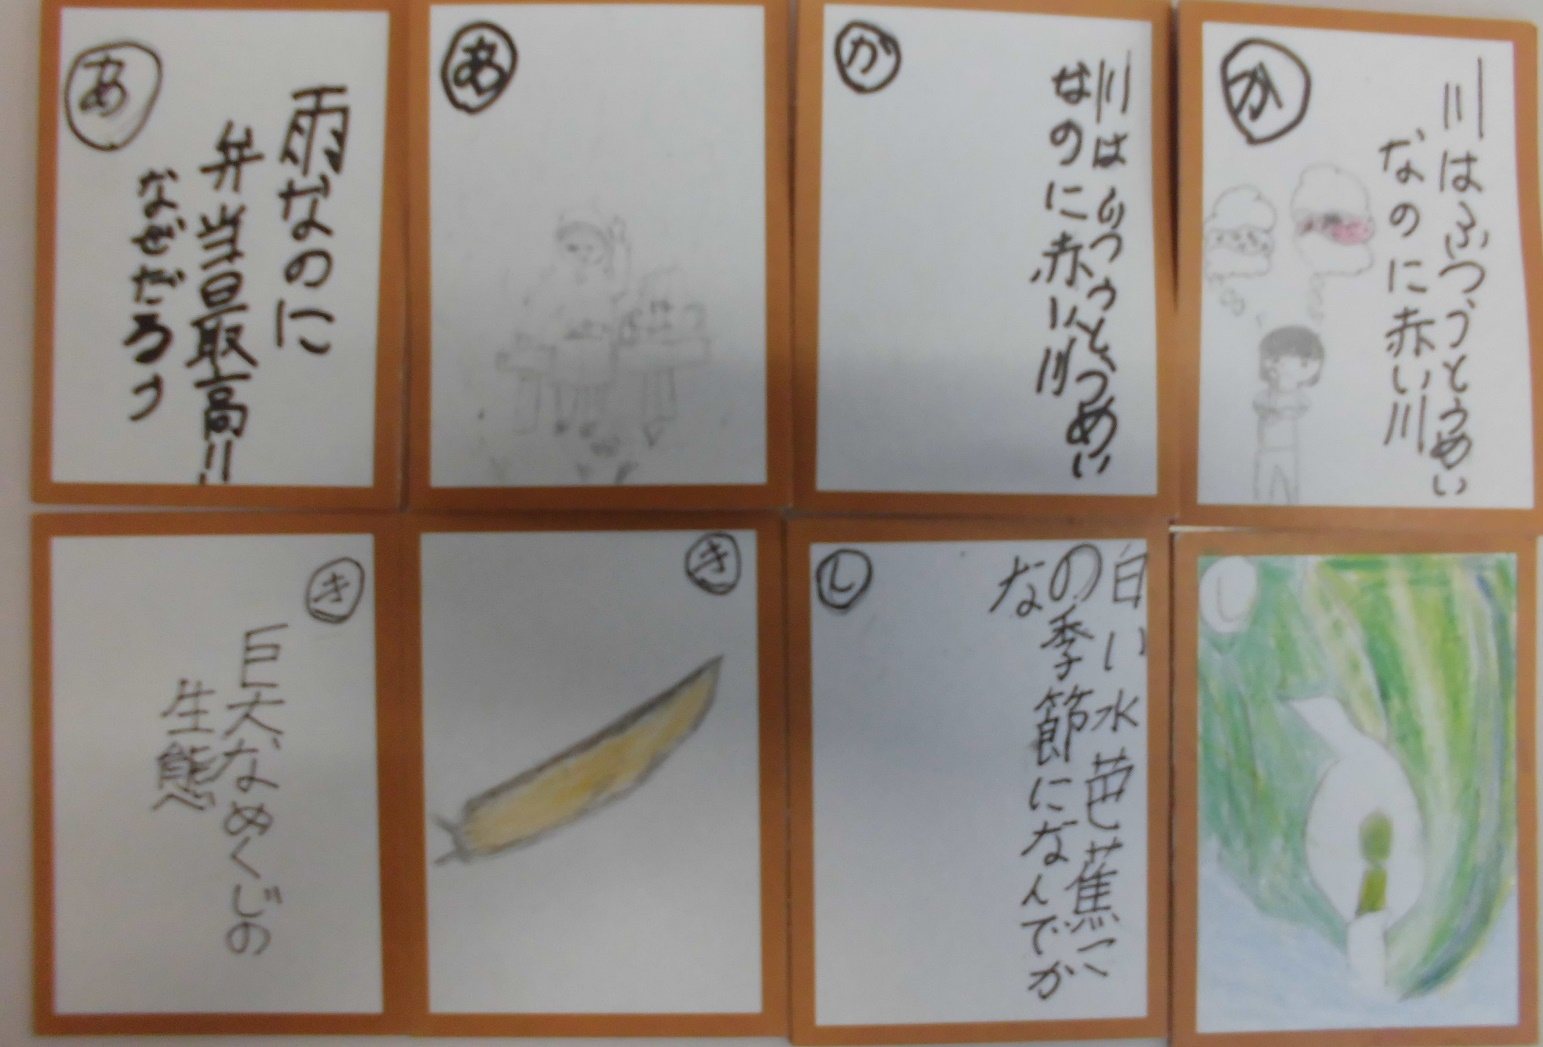 あ
雨なのに
弁当最高!!
なぜだろう
あ
か
川はふつうとうめい
なのに赤い川
か
川はふつうとうめい
なのに赤い川
き
巨大なめくじの
生態
き
し
白い水芭蕉こ
の季節になんでか
な
し